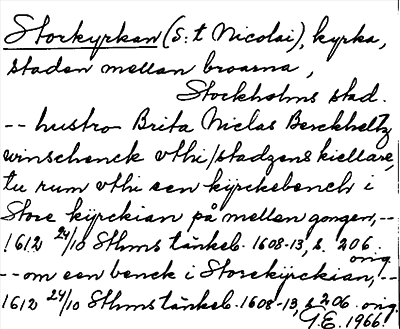 Storkyrkan (S:t Nicolai), kyrka,
staden mellan broarna,
Stockholms stad.
-- hustro Brita Niclas Berckheltz
winschenck vthi/stadzens kiellare,
tu rum vthi een kÿrckebench i
Store kÿrckian på mellan gongen, --
1612 24/10 Sthms tänkeb. 1608-13, s. 206
orig.
-- om een benck i Storekÿrckian, --
1612 24/10 Sthms tänkeb. 1608-13, s 206 orig.
G.E. 1966.